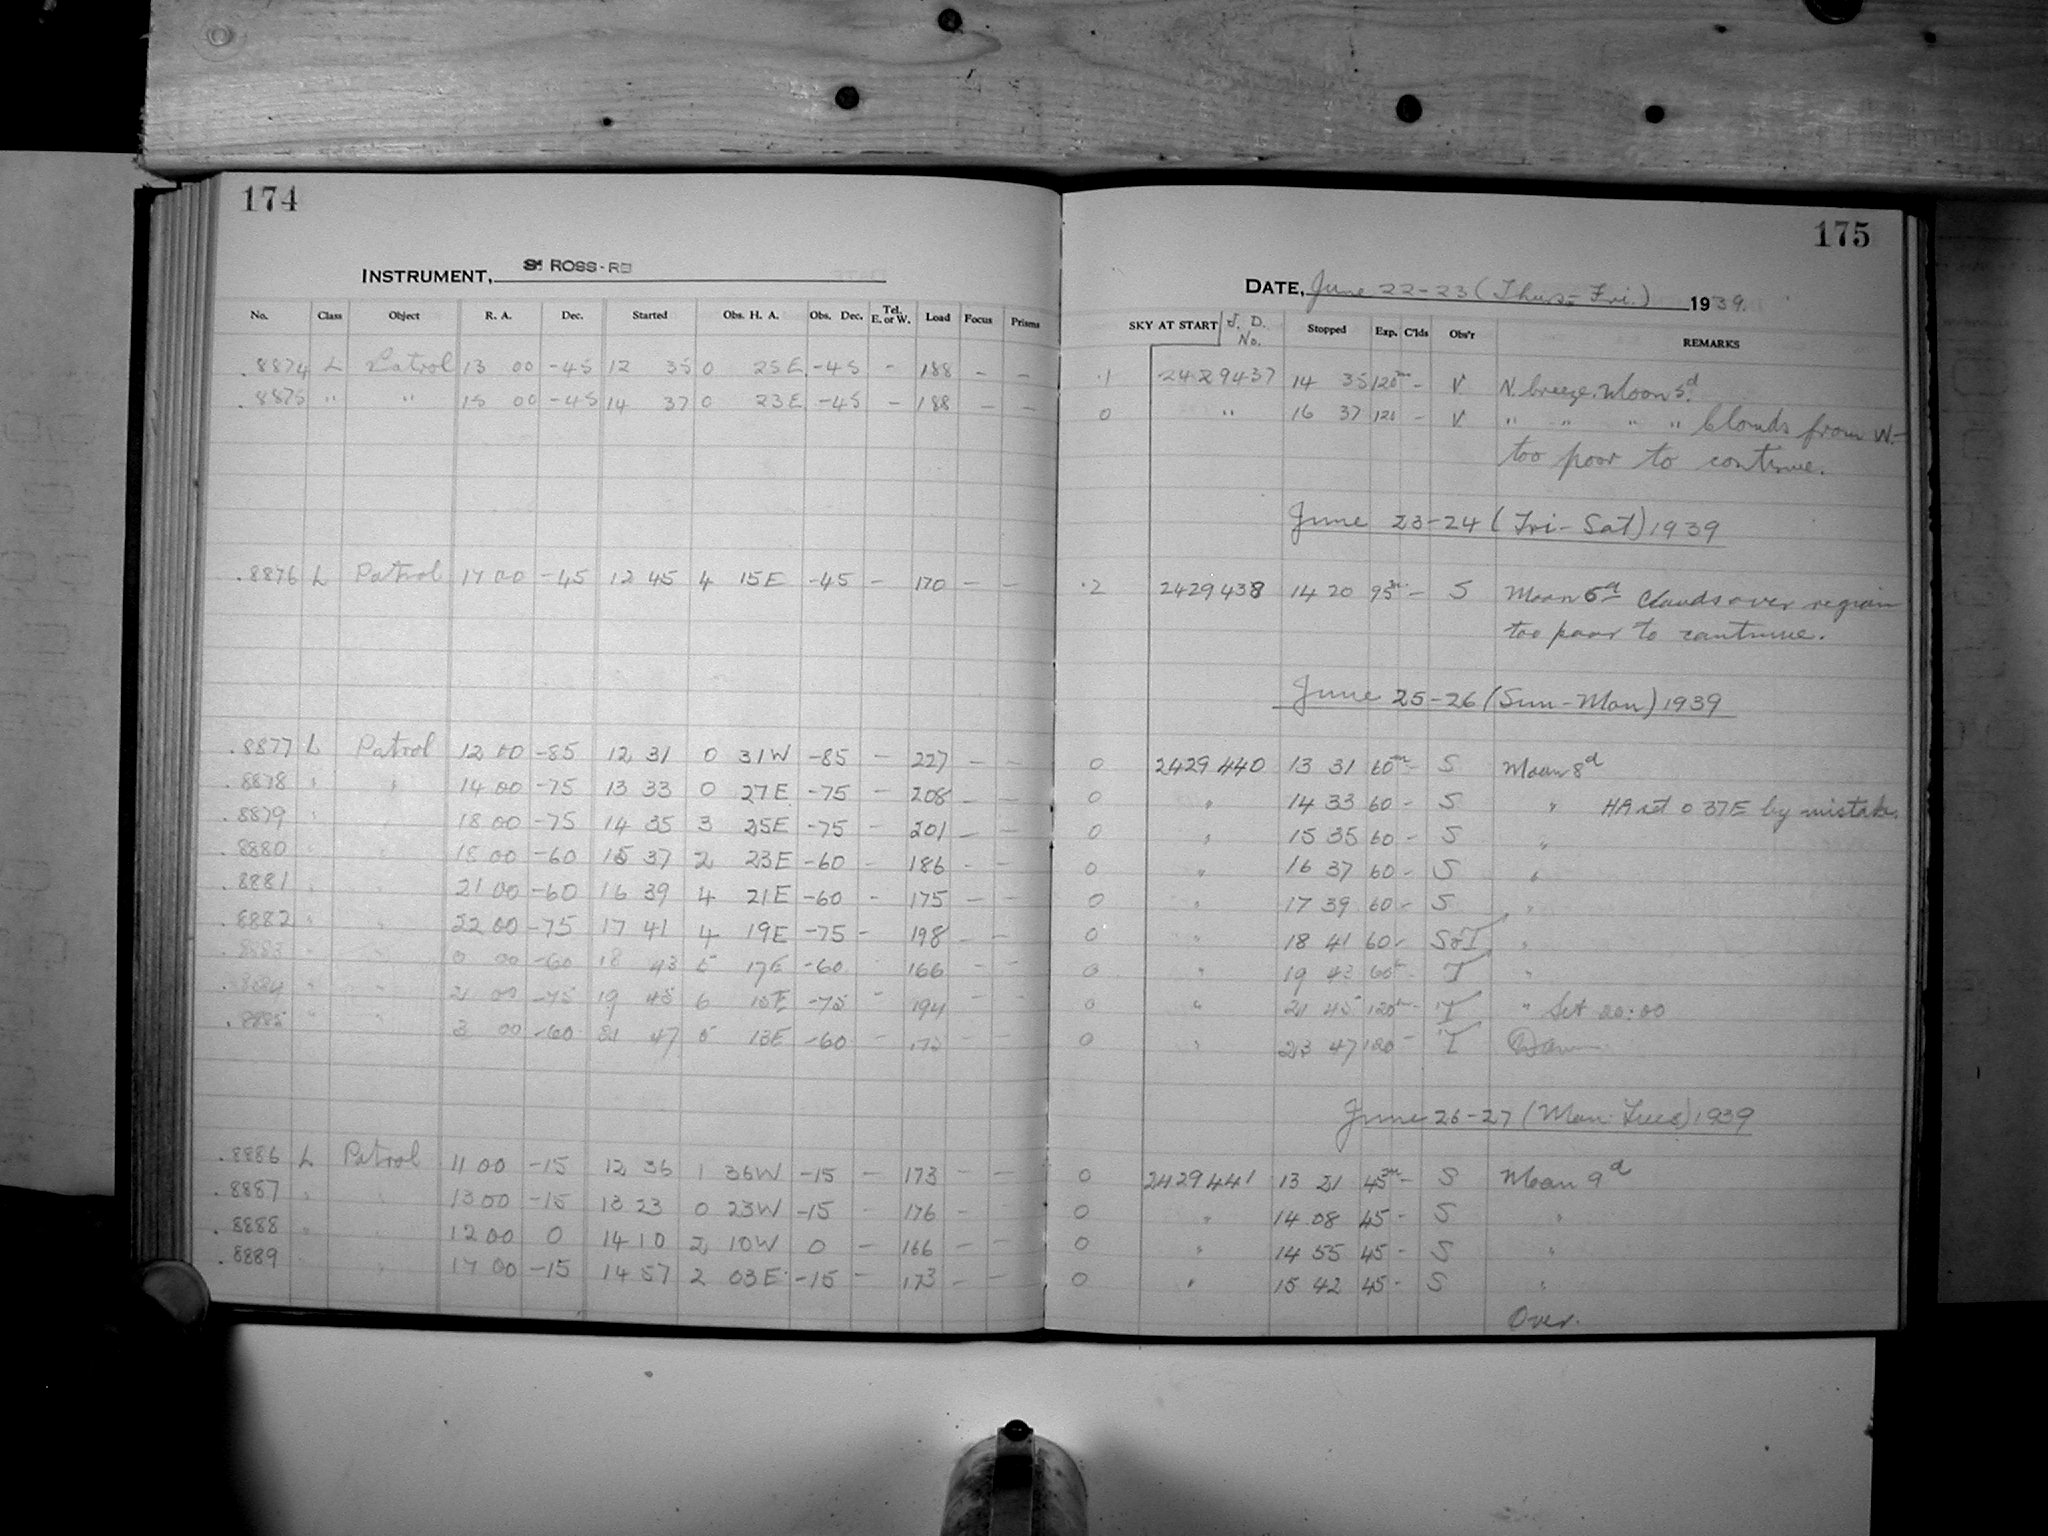 174
INSTRUMENT, ROSS-
No. Class Object R. A. Dec. Started Obs. H. A. Obs. Dec. Tel. E. or W. Load Focus Prisms
.8874 L Patrol 13 00 -45 12 35 0 25 E -45 - 188 - -
.8875 " " 15 00 -45 14 37 0 23 E -45 - 188 - -
.8876 L Patrol 17 00 -45 12 45 4 15 E -45 - 170 - -
.8877 L Patrol 12 00 -85 12 31 0 31 W -85 - 227 - -
.8878 " " 14 00 -75 13 33 0 27 E -75 - 208 - -
.8879 " " 18 00 -75 14 35 3 25 E -75 - 201 - -
.8880 " " 18 00 -60 15 37 2 23 E -60 - 186 - -
.8881 " " 21 00 -60 16 39 4 21 E -60 - 175 - -
.8882 " " 22 00 -75 17 41 4 19 E -75 - 198 - -
.8883 " " 0 00 -60 18 43 5 17 E -60 - 166 - -
.8884 " " 2 00 -75 19 45 6 15 E -75 - 194 - -
.8885 " " 3 00 -60 21 47 5 13 E -60 - - -
.8886 L Patrol 11 00 -15 12 36 1 36 W -15 - 173 - -
.8887 " " 13 00 -15 13 23 0 23 W -15 - 176 - -
.8888 " " 12 00 0 14 10 2 10 W 0 - 166 - -
.8889 " " 17 00 -15 14 57 2 03 E -15 - 173 - -
175
DATE, June 22-23 (Thurs-Fri.) 1939.
SKY AT START J. D. No. Stopped Exp. C'lds Obs'r REMARKS
.1 2429437 14 35 120m - V N. breeze. Moon 5d.
0 " 16 37 120 - V " " " " Clouds from W.-
too poor to continue.
June 23-24 (Fri-Sat) 1939
.2 2429438 14 20 95m - S Moon 6d Clouds over region
too poor to continue.
June 25-26 (Sun-Mon) 1939
0 2429440 13 31 60m - S Moon 8d
0 " 14 33 60 - S " HA set 0 37E by mistake.
0 " 15 35 60 - S "
0 " 16 37 60 - S "
0 " 17 39 60 - S "
0 " 18 41 60 - S & T "
0 " 19 43 60 - T "
0 " 21 45 120 - T " Set 20:00
0 " 23 47 120 - T Dawn
June 26-27 (Mon-Tues) 1939
0 2429441 13 21 45m - S Moon 9d
0 " 14 08 45 - S "
0 " 14 55 45 - S "
0 " 15 42 45 - S "
Over.